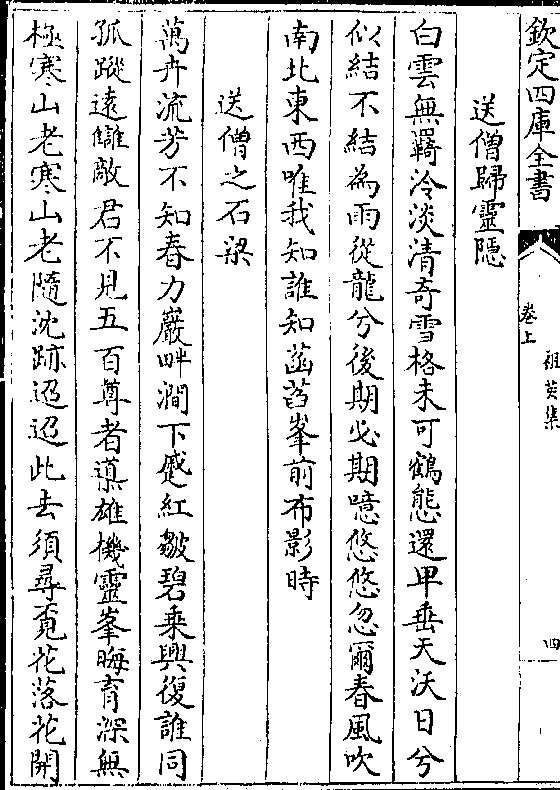 欽定四庫全書
卷上
祖英集
四
送僧歸靈隱
白雲無羇冷淡清奇雪格未可鶴態還卑垂天沃日兮
似結不結為雨從龍兮後期必期噫悠悠忽爾春風吹
南北東西唯我知誰知菡萏峯前布影時
送僧之石梁
萬卉流芳不知春力巖畔澗下蹙紅皺碧乗興復誰同
孤蹤遠讎敵君不見五百尊者導雄機靈峯晦育深無
極寒山老寒山老隨沈跡迢迢此去須尋覔花落花開